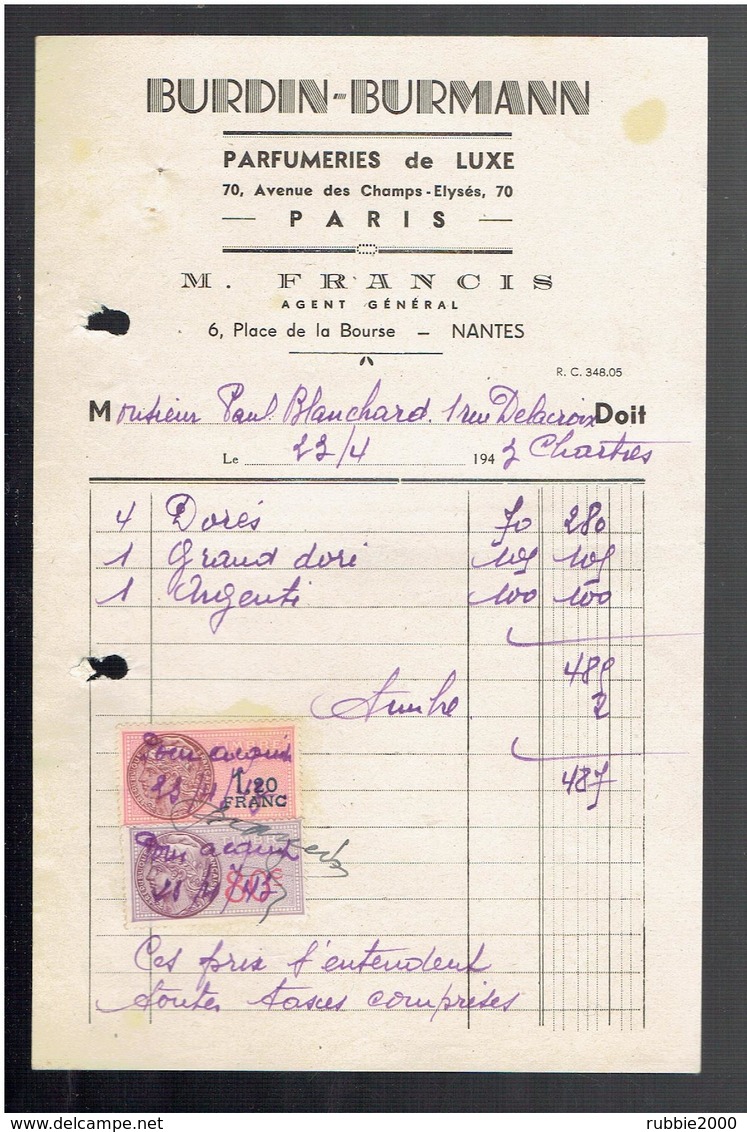 BURDIN-BURMANN
PARFUMERIES de LUXE
70, Avenue des Champs-Elysés, 70
— PARIS —
M. FRANCIS
AGENT GÉNÉRAL
6, Place de la Bourse — NANTES
R. C. 348.05
Monsieur Paul Blanchard. 1 rue Delacroix Doit
Le 23/4 1943 Chartres
4 Dorés 70 280
1 Grand doré 105 105
1 Argenté 100 100
485
Timbre 2
487
Pour acquit
1,20
FRANC
Pour acquit
80c
Ces prix s'entendent
toutes taxes comprises
delcampe.net
rubbie2000